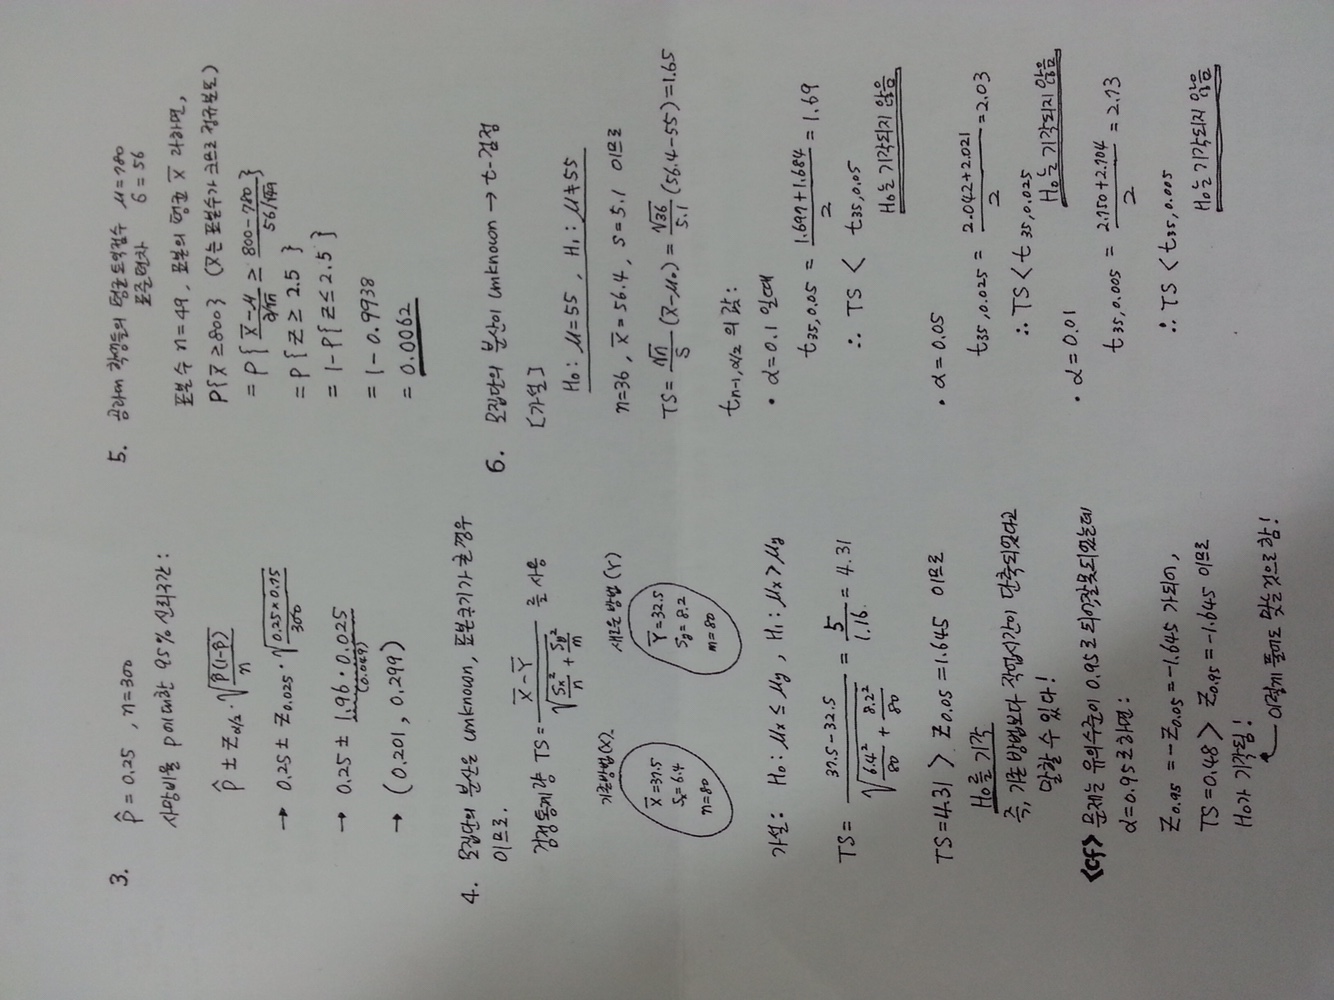 3. p̂ = 0.25 , n=300
사망비율 p에 대한 95% 신뢰구간 :
p̂ ± Zα/2 · √(p̂(1-p̂)/n)
→ 0.25 ± Z0.025 · √(0.25×0.75/300)
→ 0.25 ± 1.96 · 0.025
(0.049)
→ (0.201 , 0.299)
4. 모집단의 분산은 unknown, 표본크기가 클 경우
이므로.
검정통계량 TS = (X̄-Ȳ)/√(Sx²/n + Sy²/m) 를 사용
기존방법(X).
X̄=37.5
Sx=6.4
n=80
새로운 방법 (Y)
Ȳ=32.5
Sy=8.2
m=80
가설 : H0 : μx ≤ μy , H1 : μx > μy
TS = (37.5-32.5)/√(6.4²/80 + 8.2²/80) = 5/1.16 = 4.31
TS=4.31 > Z0.05 = 1.645 이므로
H0를 기각
즉, 기존 방법보다 작업시간이 단축되었다고
말할 수 있다!
<cf> 문제는 유의수준이 0.95로 되어잘못되있는데
α=0.95로하면 :
Z0.95 = -Z0.05 = -1.645 가되어,
TS=0.48 > Z0.95 = -1.645 이므로
H0가 기각됨!
이렇게 풀어도 맞는것으로 함!
5. 공라대 학생들의 평균토익점수 μ=780
표준편차 σ=56
표본수 n=49, 표본의 평균 X̄ 라하면,
P{X̄ ≥800} (X̄는 표본수가 크므로 정규분포)
= P{(X̄-μ)/(σ/√n) ≥ (800-780)/(56/√49)}
= P{Z ≥ 2.5 }
= 1-P{Z ≤ 2.5 }
= 1-0.9938
= 0.0062
6. 모집단의 분산이 unknown → t-검정
[가설]
H0 : μ=55 , H1 : μ≠55
n=36 , x̄=56.4 , s=5.1 이므로
TS = √n/S (x̄-μ0) = √36/5.1 (56.4-55) = 1.65
tn-1,α/2 의 값 :
· α=0.1 일때
t35,0.05 = (1.697+1.684)/2 = 1.69
∴ TS < t35,0.05
H0는 기각되지 않음
· α=0.05
t35,0.025 = (2.042+2.021)/2 = 2.03
∴ TS < t35,0.025
H0는 기각되지 않음
· α=0.01
t35,0.005 = (2.750+2.704)/2 = 2.73
∴ TS < t35,0.005
H0는 기각되지 않음